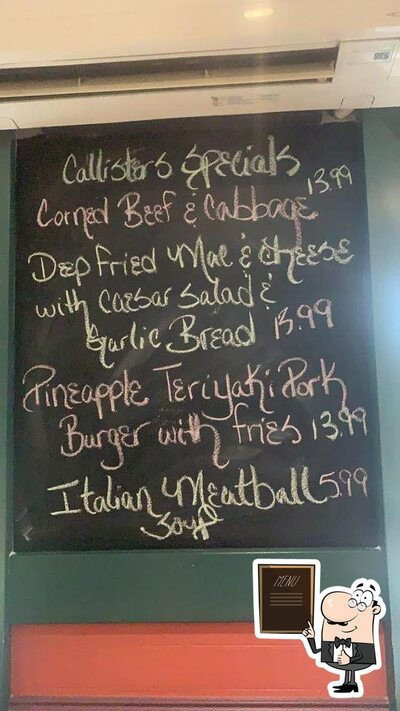 Callistors Specials
13.99
Corned Beef & Cabbage
Deep Fried Mac & cheese
with Caesar salad &
Garlic Bread 13.99
Pineapple Teriyaki Pork
Burger with fries 13.99
Italian Meatball 5.99
Soup
MENU